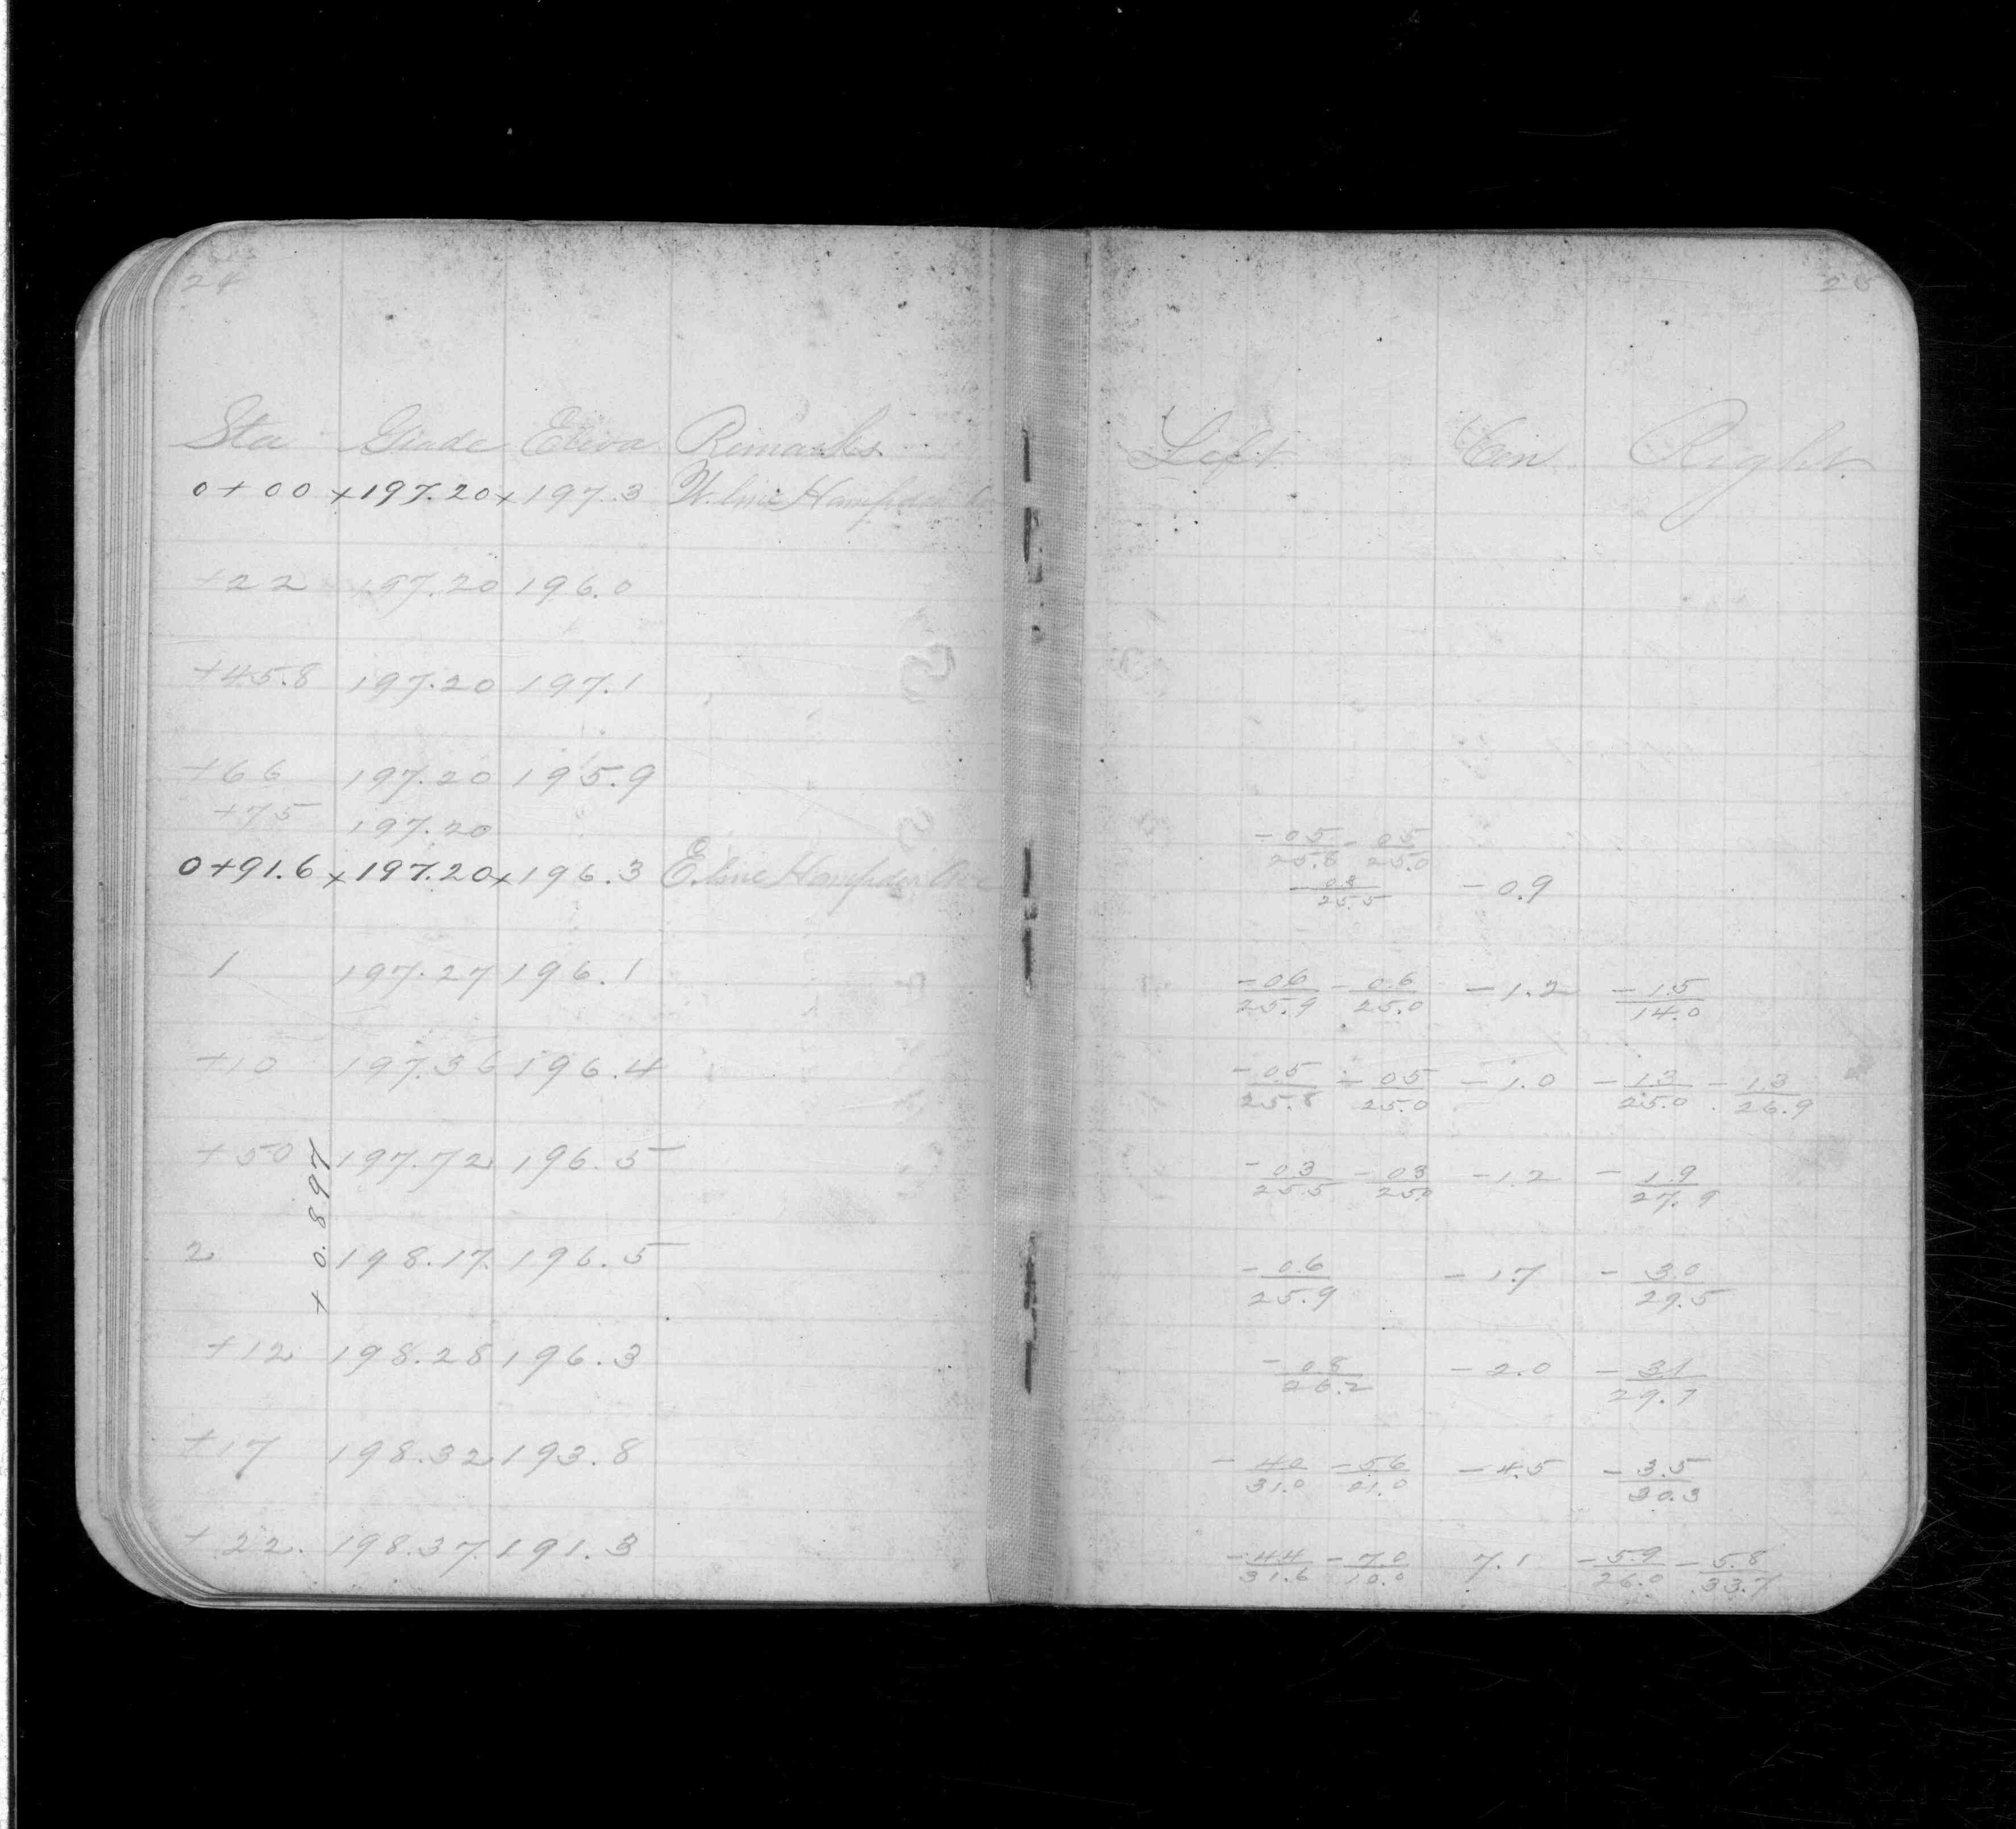 24
Sta Grade Eleva Remarks
0+00 x 197.20 x 197.3 W. line Hampden
+22 197.20 196.0
+45.8 197.20 197.1
+66 197.20 195.9
+75 197.20
0+91.6 x 197.20 x 196.3 E. line Hampden Ave
1 197.27 196.1
+10 197.36 196.4
+50 197.72 196.5
+0.897
2 198.17 196.5
+12 198.28 196.3
+17 198.32 193.8
+22. 198.37 191.3
25
Left Cen Right
-0.5/25.8 -0.5/25.0
-0.3/25.5 -0.9
-0.6/25.9 -0.6/25.0 -1.2 -1.5/14.0
-0.5/25.8 -0.5/25.0 -1.0 -1.3/25.0 -1.3/26.9
-0.3/25.5 -0.3/25.0 -1.2 -1.9/27.9
-0.6/25.9 -1.7 -3.0/29.5
-0.8/26.2 -2.0 -3.1/29.7
-4.0/31.0 -5.6/21.0 -4.5 -3.5/30.3
-4.4/31.6 -7.0/10.0 7.1 -5.9/26.0 -5.8/33.7